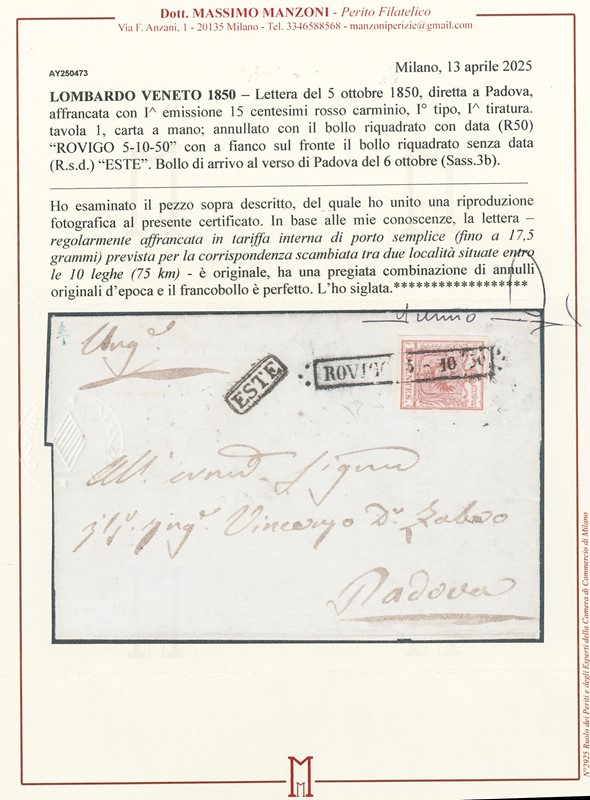 Dott. MASSIMO MANZONI - Perito Filatelico
Via F. Anzani, 1 - 20135 Milano - Tel. 3346588568 - manzoniperizie@gmail.com
AY250473
Milano, 13 aprile 2025
LOMBARDO VENETO 1850 – Lettera del 5 ottobre 1850, diretta a Padova,
affrancata con I^ emissione 15 centesimi rosso carminio, I° tipo, I^ tiratura.
tavola 1, carta a mano; annullato con il bollo riquadrato con data (R50)
“ROVIGO 5-10-50” con a fianco sul fronte il bollo riquadrato senza data
(R.s.d.) “ESTE”. Bollo di arrivo al verso di Padova del 6 ottobre (Sass.3b).
Ho esaminato il pezzo sopra descritto, del quale ho unito una riproduzione
fotografica al presente certificato. In base alle mie conoscenze, la lettera –
regolarmente affrancata in tariffa interna di porto semplice (fino a 17,5
grammi) prevista per la corrispondenza scambiata tra due località situate entro
le 10 leghe (75 km) - è originale, ha una pregiata combinazione di annulli
originali d’epoca e il francobollo è perfetto. L’ho siglata.******************
ESTE
ROVIGO 5 - 10 50
CENTES.
All'
Vincenzo
Padova
M
N°2925 Ruolo dei Periti e degli Esperti della Camera di Commercio di Milano